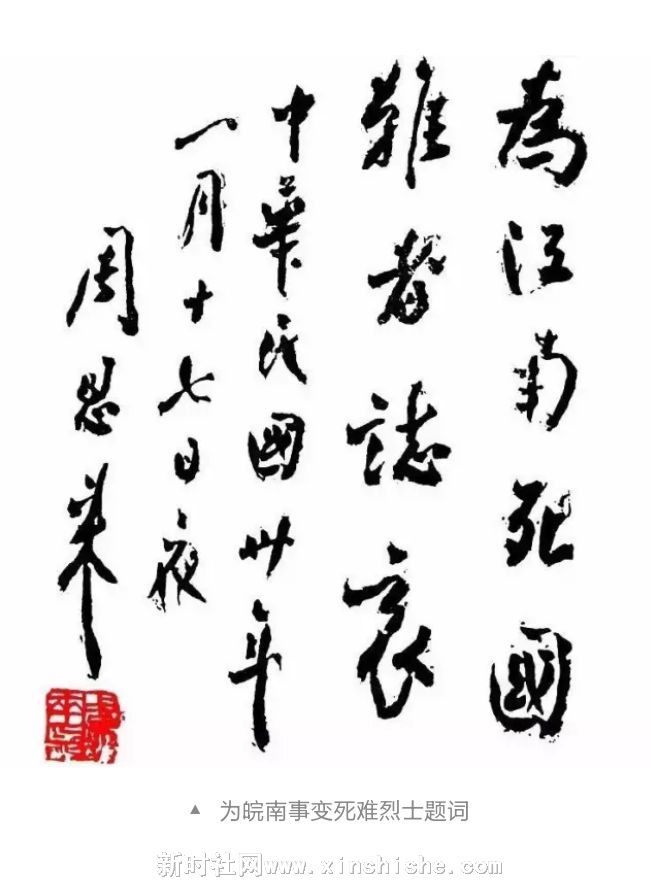 為江南死國
難者誌哀
中華民國卅年
一月十七日夜
周恩来
▲ 为皖南事变死难烈士题词
新时社网www.xinshishe.com